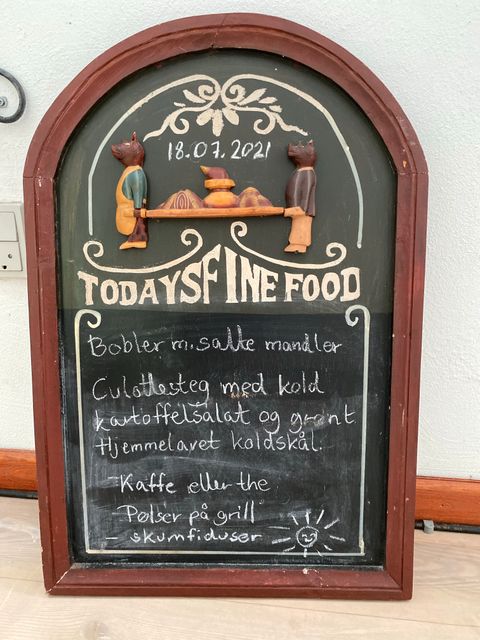 18.07.2021
TODAYS FINE FOOD
Bobler m. salte mandler
Culottesteg med kold
kartoffelsalat og grønt
Hjemmelavet koldskål.
- Kaffe eller the
- Pølser på grill
- skumfiduser